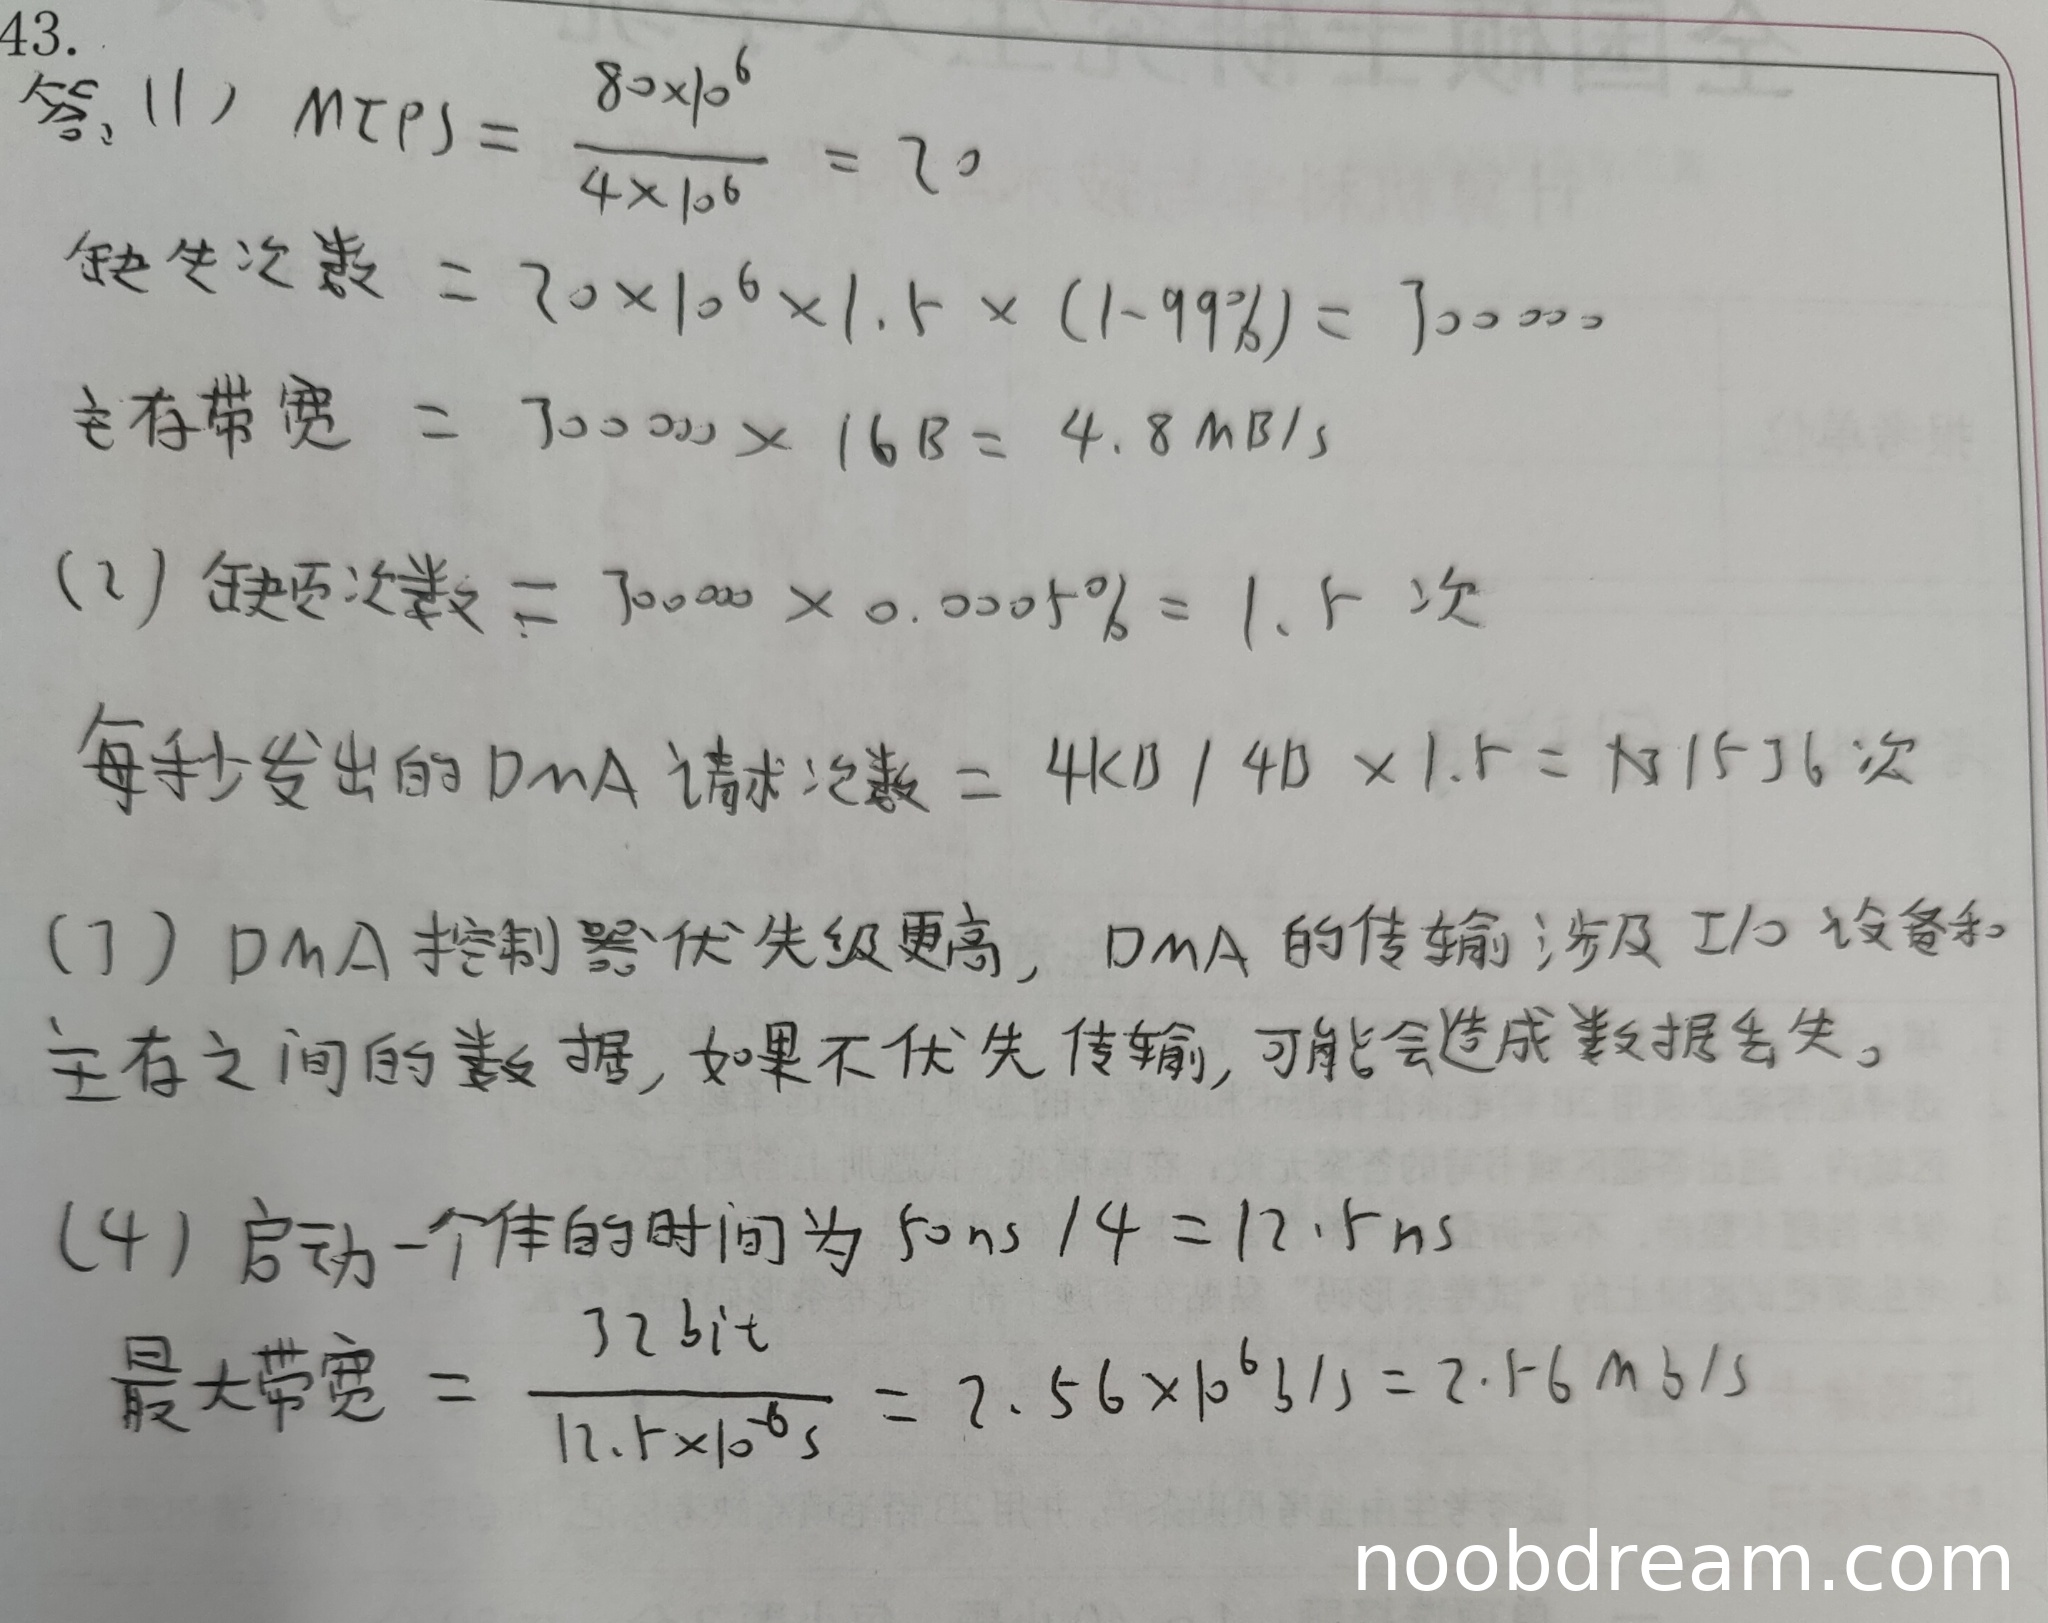 43.
答: (1) MIPS = 80×10⁶ / 4×10⁶ = 20
缺失次数 = 20×10⁶×1.5×(1-99%) = 300000
主存带宽 = 300000×16B = 4.8MB/s
(2) 缺页次数 = 300000×0.0005% = 1.5 次
每秒发出的DMA请求次数 = 4KB/4B×1.5 = 1536次
(3) DMA控制器优先级更高, DMA的传输涉及I/O设备和
主存之间的数据, 如果不优先传输, 可能会造成数据丢失。
(4) 启动一个体的时间为50ns/4=12.5ns
最大带宽 = 32bit / 12.5×10⁻⁶s = 2.56×10⁶b/s = 2.56Mb/s
noobdream.com